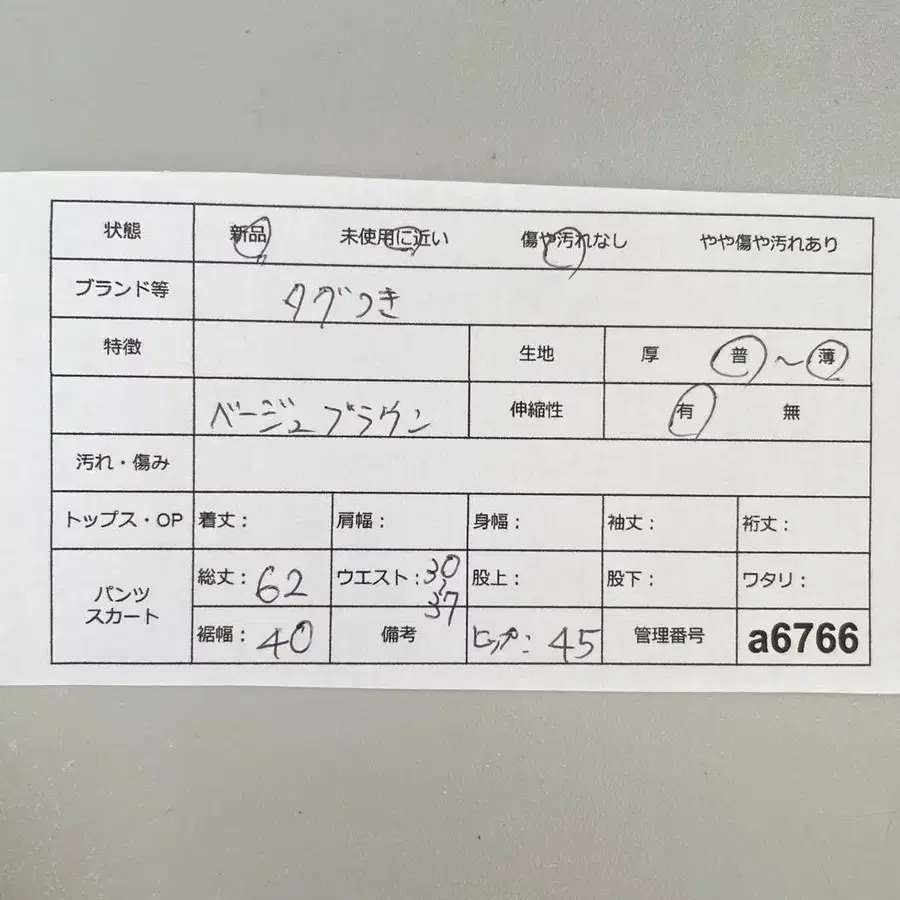 状態 新品 未使用に近い 傷や汚れなし やや傷や汚れあり
ブランド等 タグつき
特徴 生地 厚 普 〜 薄
ベージュブラウン 伸縮性 有 無
汚れ・傷み
トップス・OP 着丈： 肩幅： 身幅： 袖丈： 裄丈：
パンツ スカート 総丈：62 ウエスト：30〜37 股上： 股下： ワタリ：
裾幅：40 備考 ヒップ：45 管理番号 a6766